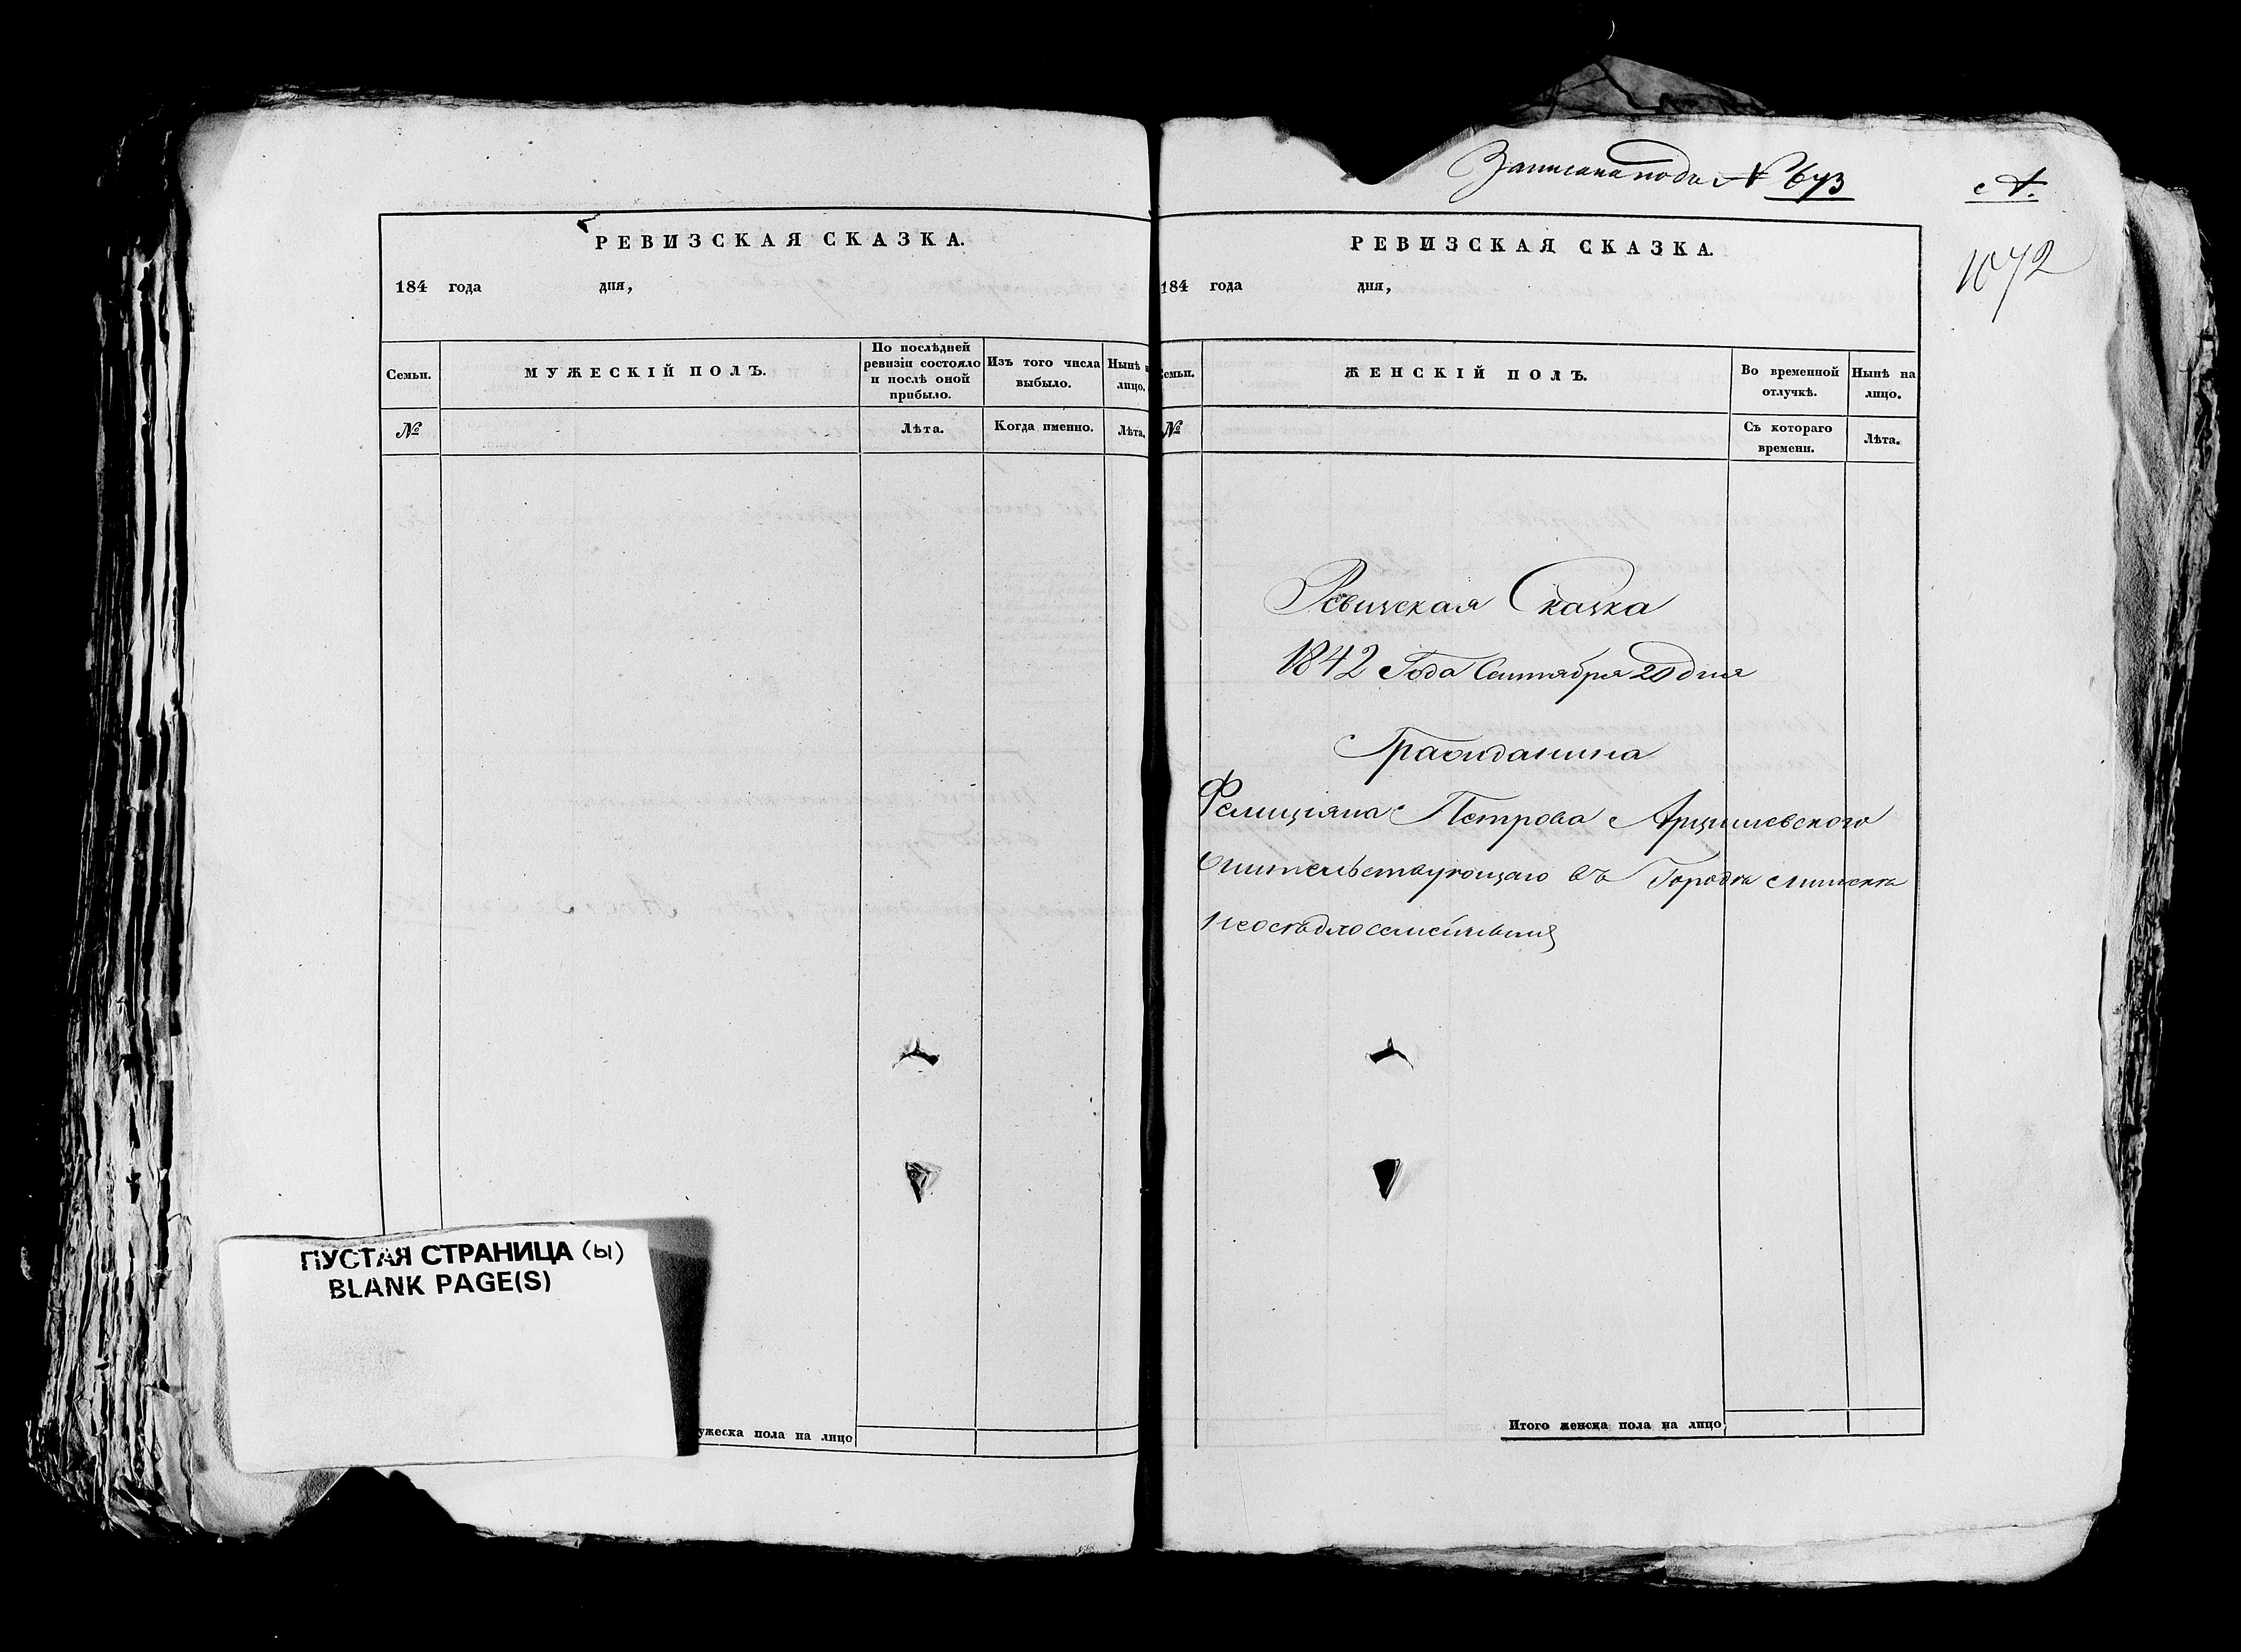 РЕВИЗСКАЯ СКАЗКА.
184 года дня,
Семьи.
МУЖЕСКІЙ ПОЛЪ.
По послѣдней ревизіи состояло и послѣ оной прибыло.
Изъ того числа выбыло.
Нынѣ
лицо.
№
Лѣта.
Когда именно.
Лѣта.
ПУСТАЯ СТРАНИЦА (ы)
BLANK PAGE(S)
ужеска пола на лицо
Записана подъ № 673
А.
1072
РЕВИЗСКАЯ СКАЗКА.
184 года дня,
емьи.
ЖЕНСКІЙ ПОЛЪ.
Во временной отлучкѣ.
Нынѣ на лицо.
№
Съ котораго времени.
Лѣта.
Ревизская Сказка
1842 Года Сентября 20 дня
Гражданина
Фелиціяна Петрова Арцишевского
жительствующаго въ Городѣ Минскѣ
неосѣдлосемейный
Итого женска пола на лицо